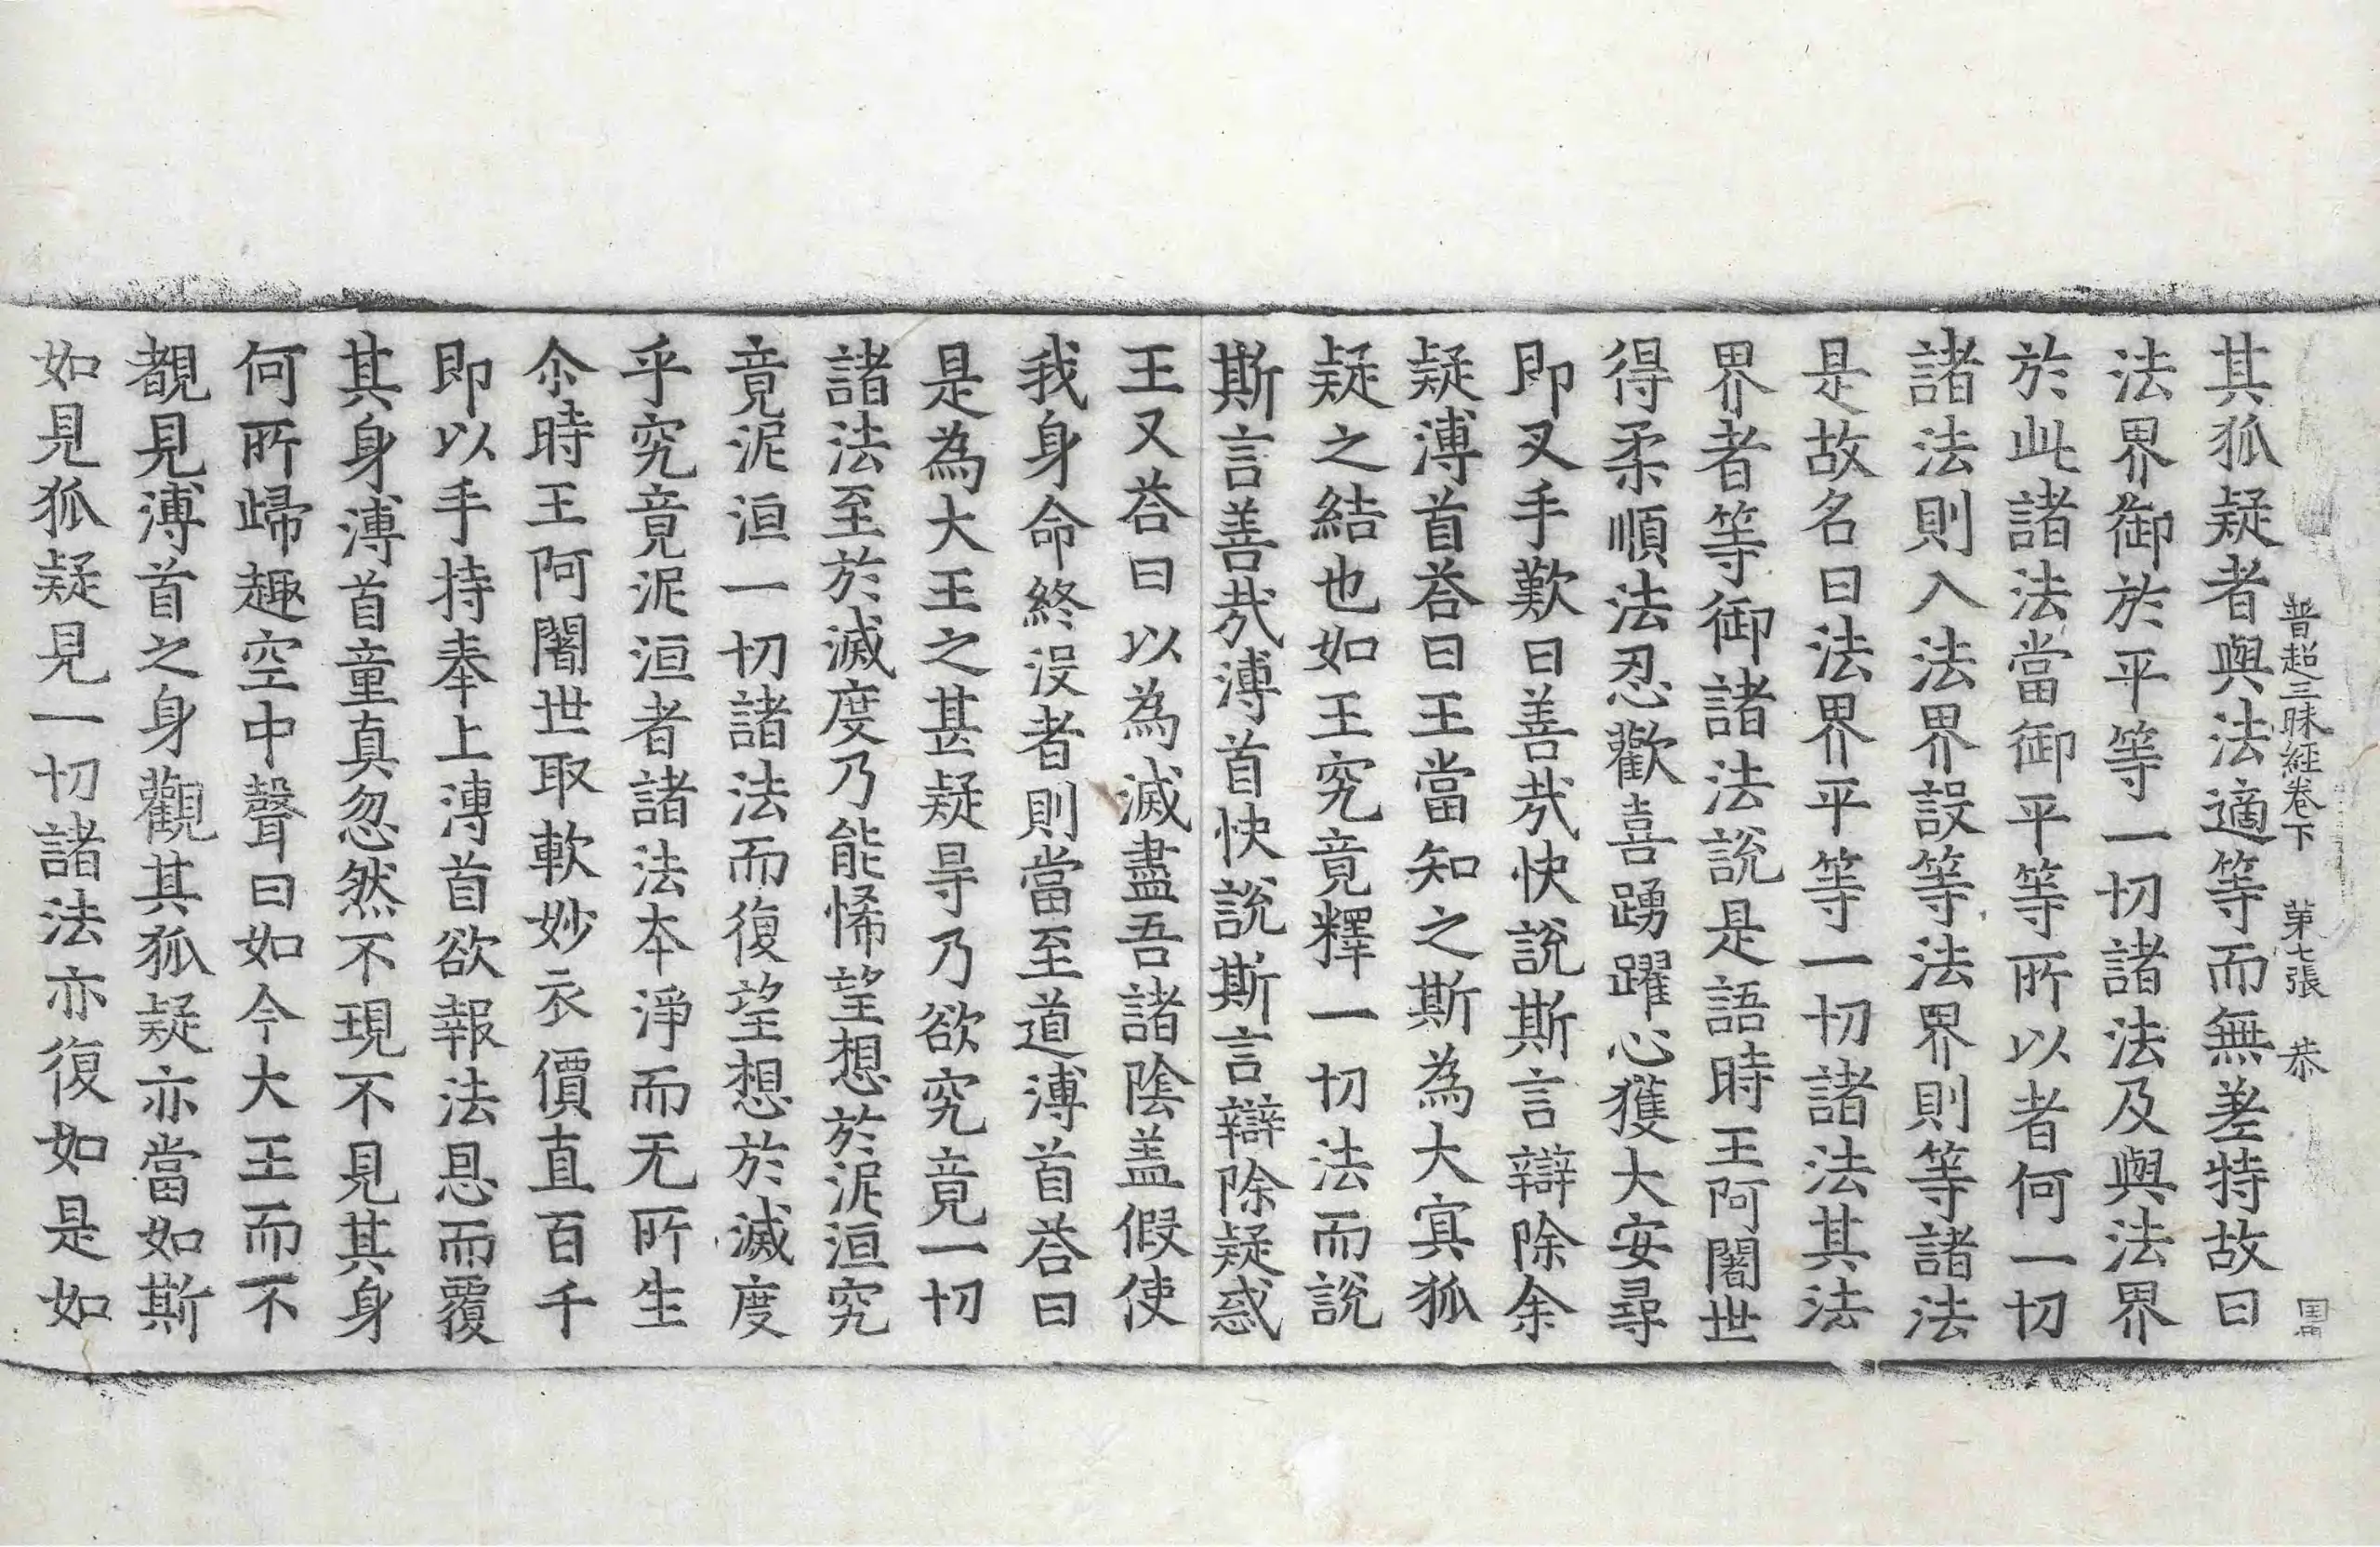 普超三昧經卷下 第七張 恭
其狐疑者與法適等而無差特故曰
法界御於平等一切諸法及與法界
於此諸法當御平等所以者何一切
諸法則入法界設等法界則等諸法
是故名曰法界平等一切諸法其法
界者等御諸法說是語時王阿闍世
得柔順法忍歡喜踊躍心獲大安尋
即叉手歎曰善㢤快說斯言辯除余
疑溥首荅曰王當知之斯為大㝠狐
疑之結也如王究竟釋一切法而說
斯言善㢤溥首快說斯言辯除疑惑
王又荅曰以為滅盡吾諸陰盖假使
我身命終沒者則當至道溥首荅曰
是為大王之甚疑㝵乃欲究竟一切
諸法至於滅度乃能悕望想於泥洹究
竟泥洹一切諸法而復望想於滅度
乎究竟泥洹者諸法本淨而无所生
尒時王阿闍世取軟妙衣價直百千
即以手持奉上溥首欲報法恩而覆
其身溥首童真忽然不現不見其身
何所歸趣空中聲曰如今大王而不
覩見溥首之身觀其狐疑亦當如斯
如見狐疑見一切諸法亦復如是如